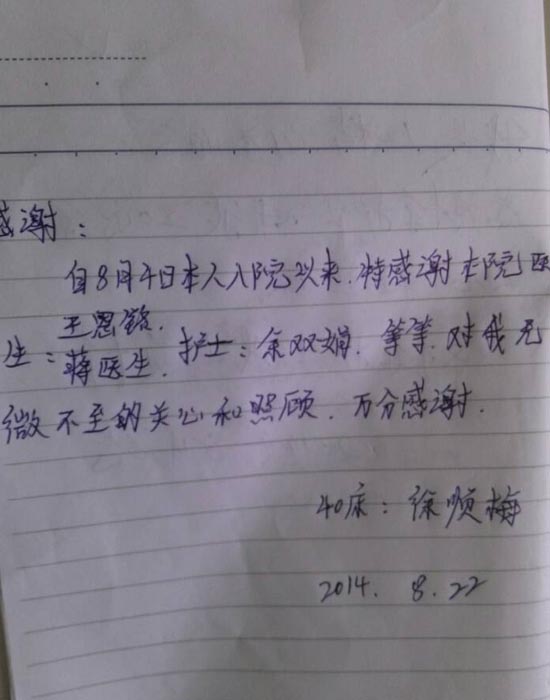 感谢:
自8月4日本人入院以来.特感谢本院医
王思铭.
生:蒋医生.护士:余双娟.等等.对我无
微不至的关心和照顾.万分感谢.
40床:徐顺梅
2014. 8.22